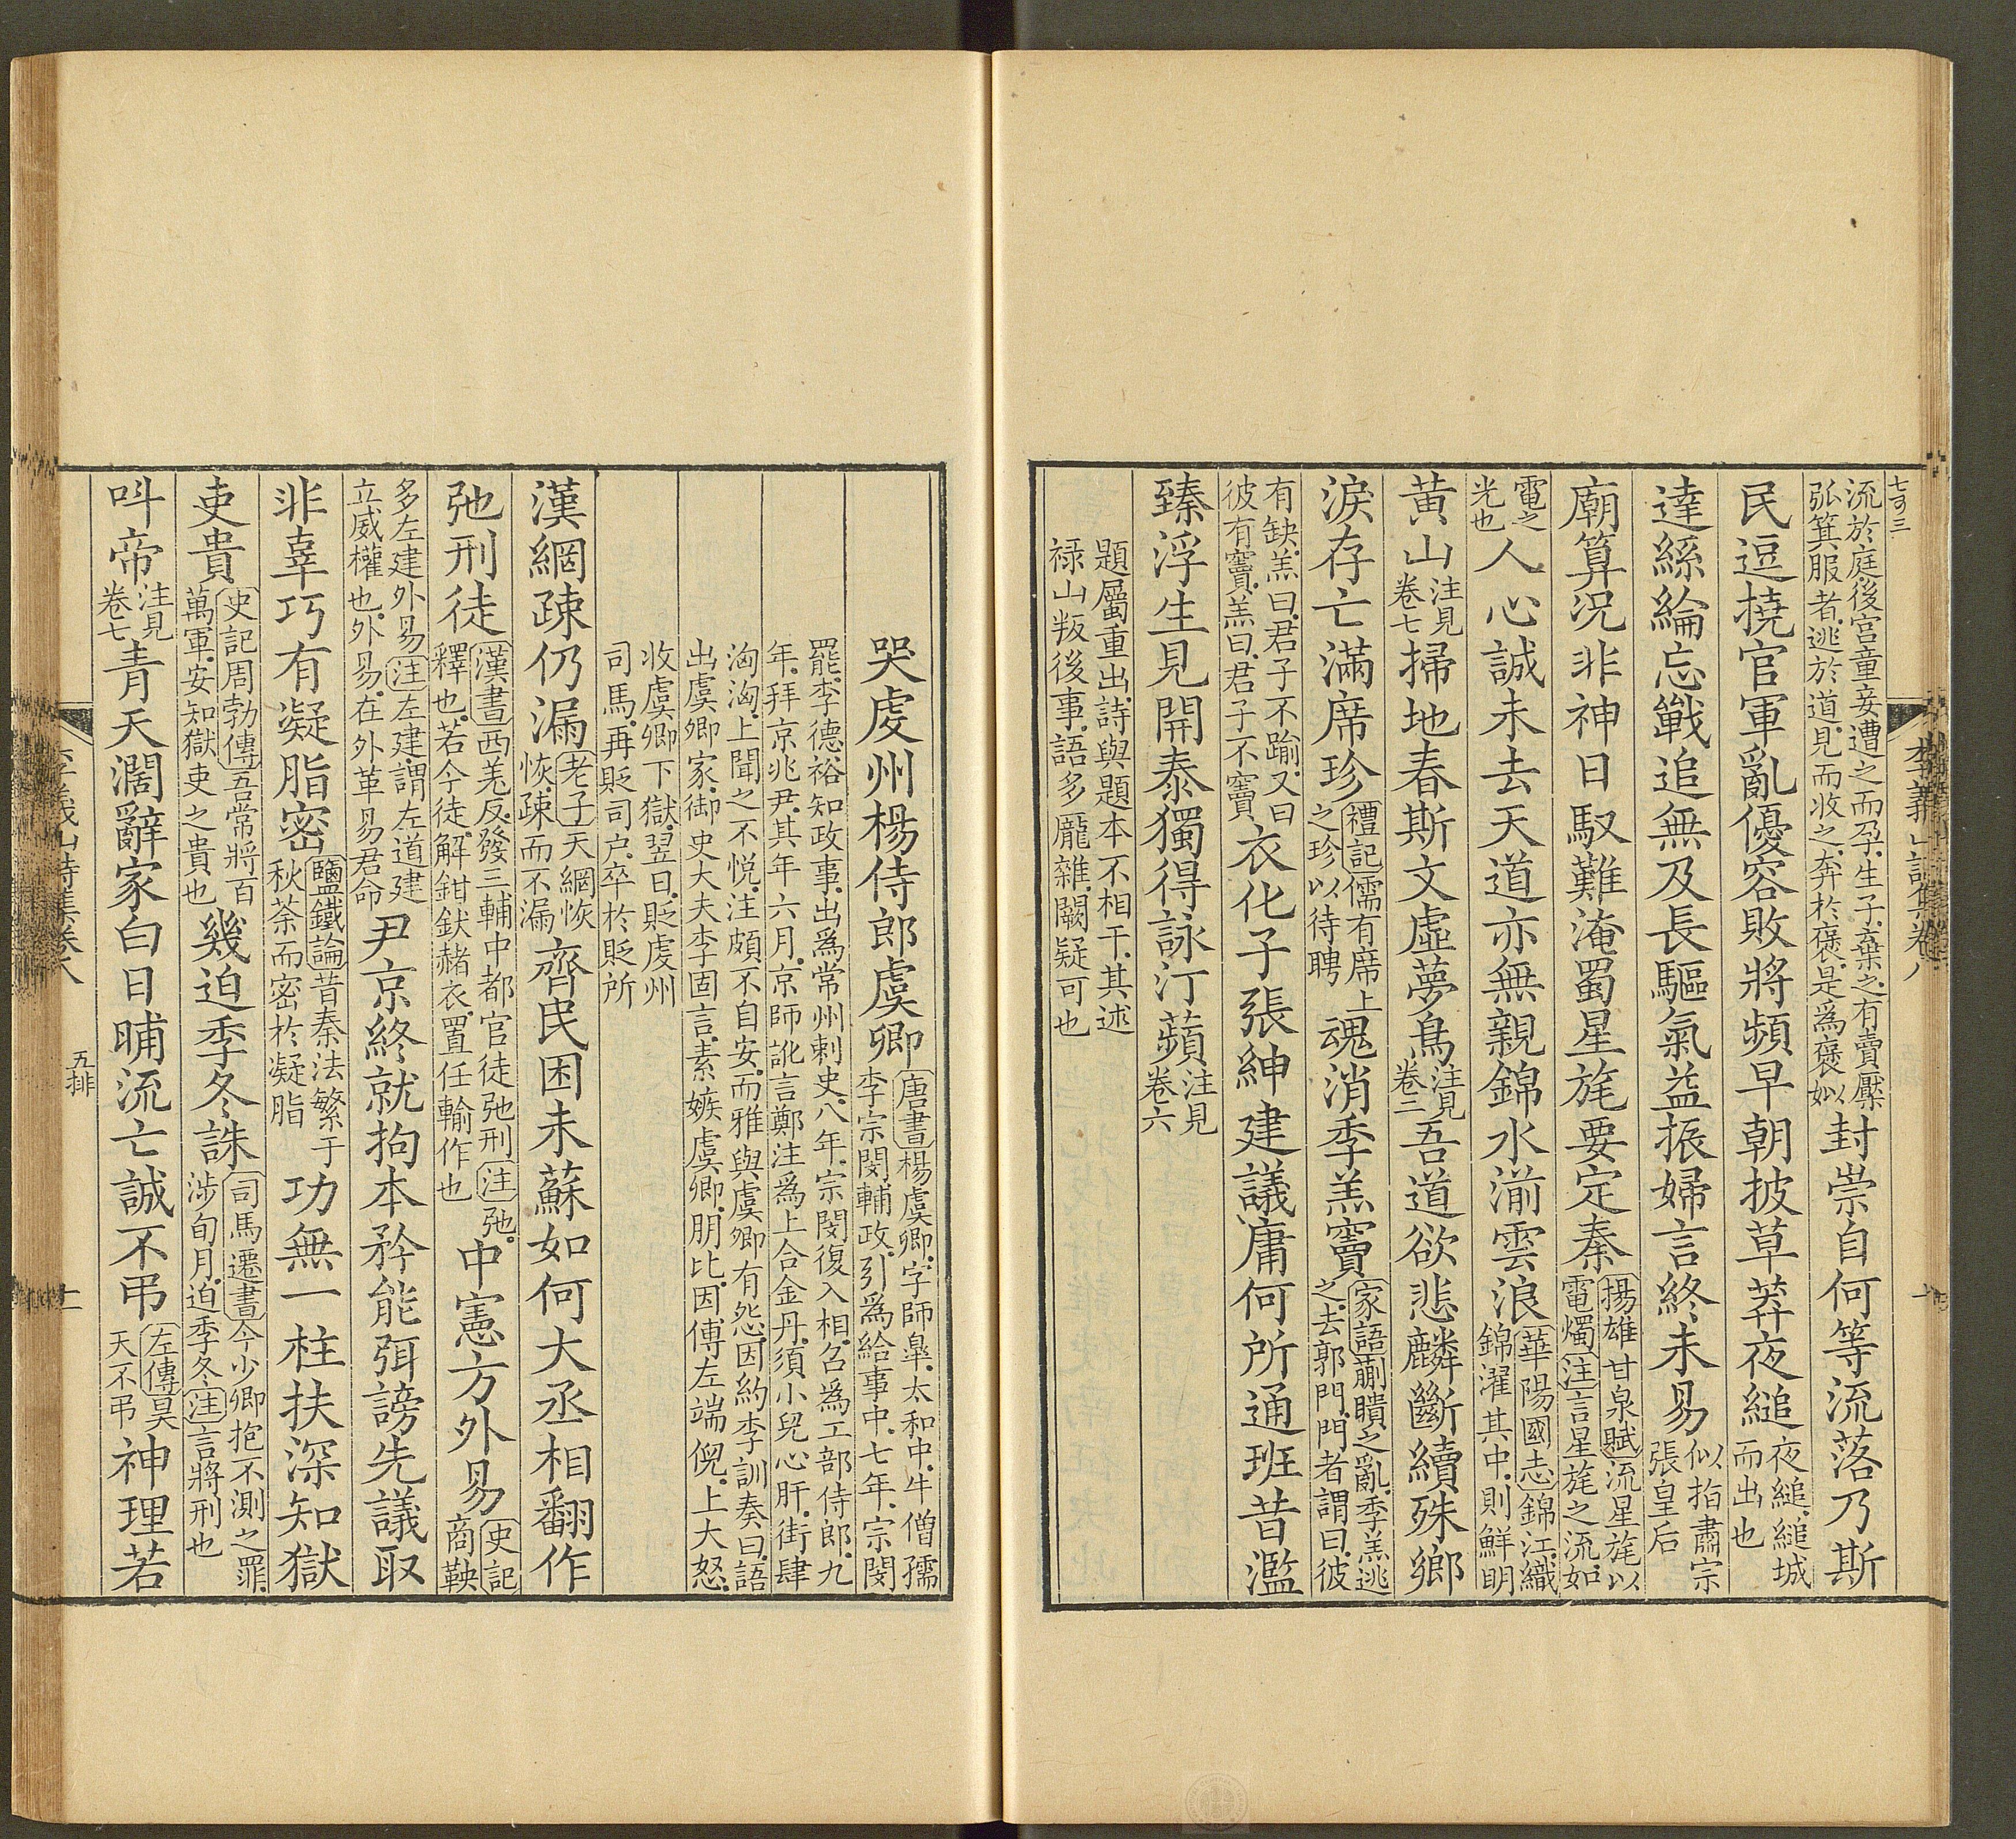 七可三
流於庭後宮童妾遭之而孕生子棄之有賣檿
弧箕服者逃於道見而收之奔於襃是為襃姒以
封崇自何等流落乃斯
民逗撓官軍亂優容敗將頻早朝披草莽夜縋
夜縋縋城
而出也
達絲綸忘戰追無及長驅氣益振婦言終未易
似指肅宗
張皇后
廟算況非神日馭難淹蜀星旄要定秦
揚雄甘泉賦流星旄以
電燭注言星旄之流如
電之
光也
人心誠未去天道亦無親錦水湔雲浪
華陽國志錦江織
錦濯其中則鮮明
黃山
注見
卷七
掃地春斯文虛夢鳥
注見
卷二
吾道欲悲麟斷續殊鄉
淚存亡滿席珍
禮記儒有席上
之珍以待聘
魂消季羔竇
家語蒯聵之亂季羔逃
之去郭門門者謂曰彼
有缺羔曰君子不踰又曰
彼有竇羔曰君子不竇
衣化子張紳建議庸何所通班昔濫
臻浮生見開泰獨得詠汀蘋
注見
卷六
題屬重出詩與題本不相干其述
祿山叛後事語多龐雜闕疑可也
李義山詩集卷八
哭虔州楊侍郎虞卿
唐書楊虞卿字師臯太和中牛僧孺
李宗閔輔政引為給事中七年宗閔
罷李德裕知政事出為常州刺史八年宗閔復入相召為工部侍郎九
年拜京兆尹其年六月京師訛言鄭注為上合金丹須小兒心肝街肆
洶洶上聞之不悅注頗不自安而雅與虞卿有怨因約李訓奏曰語
出虞卿家御史大夫李固言素嫉虞卿朋比因傅左端倪上大怒
收虞卿下獄翌日貶虔州
司馬再貶司户卒於貶所
漢網疎仍漏
老子天網恢
恢疎而不漏
齊民困未蘇如何大丞相翻作
弛刑徒
漢書西羌反發三輔中都官徒弛刑注弛
釋也若今徒解鉗釱赭衣置任輸作也
中憲方外易
史記
商鞅
多左建外易注左建謂左道建
立威權也外易在外革易君命
尹京終就拘本矜能弭謗先議取
非辜巧有凝脂密
鹽鐵論昔秦法繁于
秋荼而密於凝脂
功無一柱扶深知獄
吏貴
史記周勃傳吾常將百
萬軍安知獄吏之貴也
幾迫季冬誅
司馬遷書今少卿抱不測之罪
涉旬月迫季冬注言將刑也
叫帝
注見
卷七
青天闊辭家白日晡流亡誠不弔
左傳昊
天不弔
神理若
李義山詩集卷八
五排